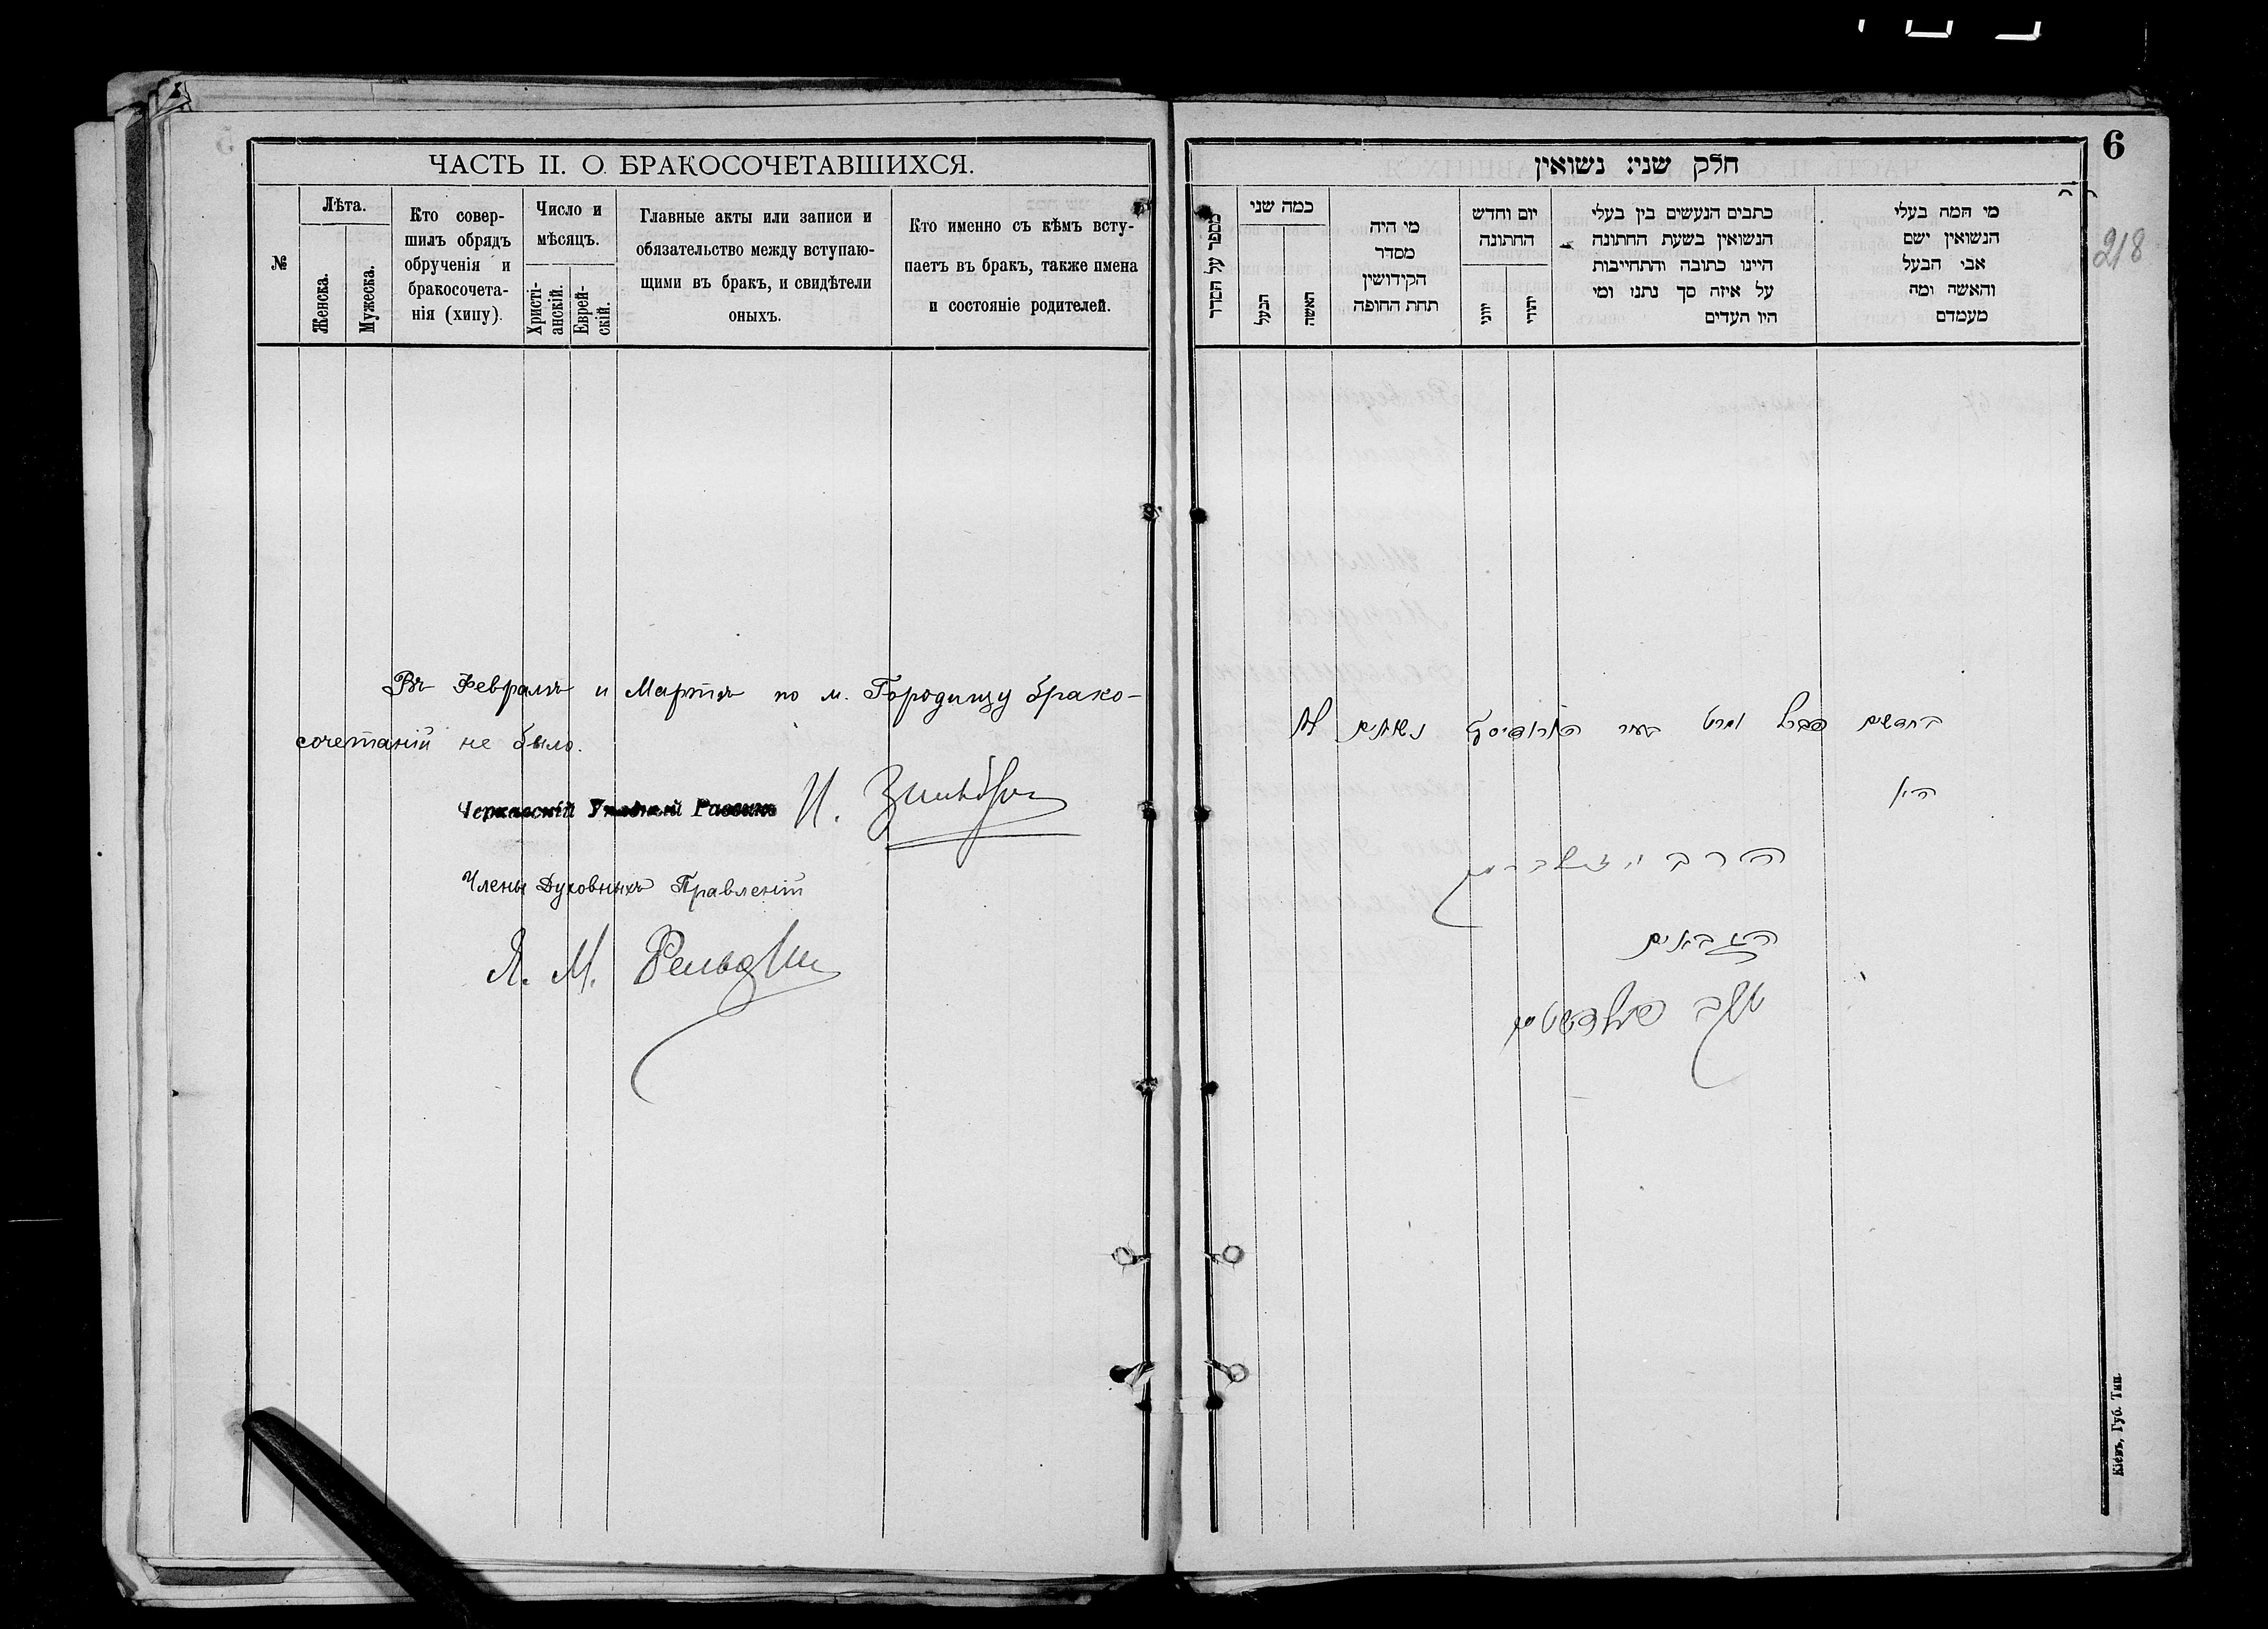 ЧАСТЬ II. О БРАКОСОЧЕТАВШИХСЯ.
№
Лѣта.
Женска.
Мужеска.
Кто совер-
шилъ обрядъ
обрученія и
бракосочета-
нія (хипу).
Число и
мѣсяцъ.
Христі-
анскій.
Еврей-
скій.
Главные акты или записи и
обязательство между вступаю-
щими въ бракъ, и свидѣтели
оныхъ.
Кто именно съ кѣмъ всту-
паетъ въ бракъ, также имена
и состояніе родителей.
Въ Февралѣ и Мартѣ по м. Городищу брако-
сочетаній не было.
Черкасскій Уѣздный Раввинъ И.
Члены Духовныхъ Правленій
Я. М.
6
218
חלק שני: נשואין
מספר על הסדר
כמה שני
הבעל
האשה
מי היה
מסדר
הקידושין
תחת החופה
יום וחדש
החתונה
יווני
יהודי
כתבים הנעשים בין בעלי
הנשואין בשעת החתונה
היינו כתובה והתחייבות
על איזה סך נתנו ומי
היו העדים
מי המה בעלי
הנשואין ושם
אבי הבעל
והאשה ומה
מעמדם
בחדשים פברל ומרט בעיר האראדיסץ נשואים לא
היו
הרב
הגבאים
Кіевъ, Губ. Тип.